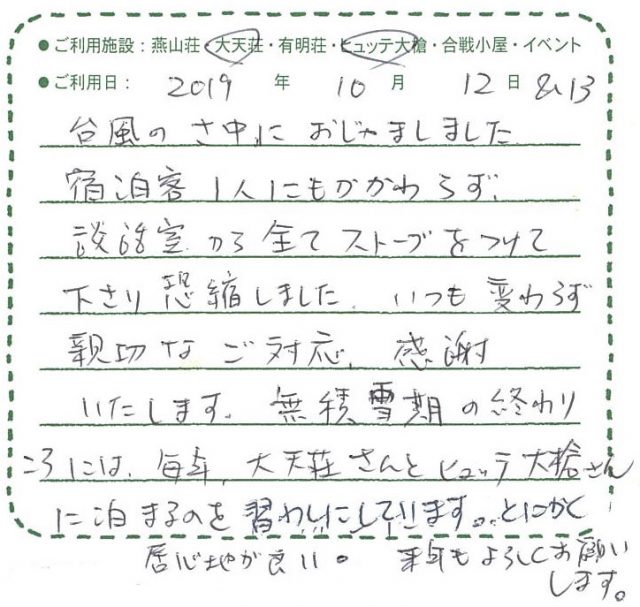 ●ご利用施設：燕山荘・大天荘・有明荘・ヒュッテ大槍・合戦小屋・イベント
●ご利用日： 2019 年 10 月 12 日 &13
台風のさ中におじゃましました
宿泊客1人にもかかわらず、
談話室から全てストーブをつけて
下さり恐縮しました。いつも変わらず
親切なご対応、感謝
いたします。無積雪期の終わり
ころには、毎年、大天荘さんとヒュッテ大槍さん
に泊まるのを習わしにしています。とにかく
居心地が良い。来年もよろしくお願い
します。